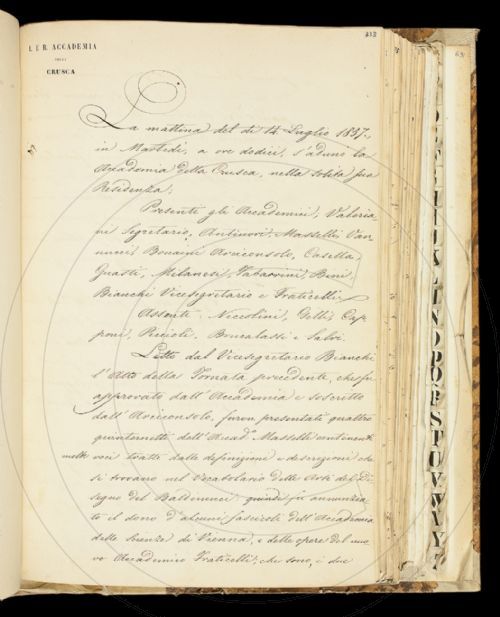 I. E R. ACCADEMIA
DELLA
CRUSCA
La mattina del dì 14 Luglio 1857.,
in Martedì, a ore dodici, s'adunò la
Accademia della Crusca, nella solita sua
Residenza.
Presenti gli Accademici, Valeria
ni Segretario, Antinori, Masselli, Van
nucci, Bonaini Arciconsolo, Casella,
Guasti, Milanesi, Tabarrini, Bini,
Bianchi Vicesegretario e Fraticelli.
Assenti. Niccolini, Gelli, Cap
poni, Piccioli, Brucalassi e Salvi.
Letto dal Vicesegretario Bianchi
l'Atto della Tornata precedente, che fu
approvato dall'Accademia e soscritto
dall'Arciconsolo, furon presentati quattro
quinternetti dell'Accad.º Masselli contenenti
molte voci tratte dalle definizioni e descrizioni che
si trovano nel Vocabolario delle Arti del Di
segno del Baldinucci; quindi fu annunzia
to il dono d'alcuni fascicoli dell'Accademia
delle Scienze di Vienna, e delle opere del nuo
vo Accademico Fraticelli, che sono, i due